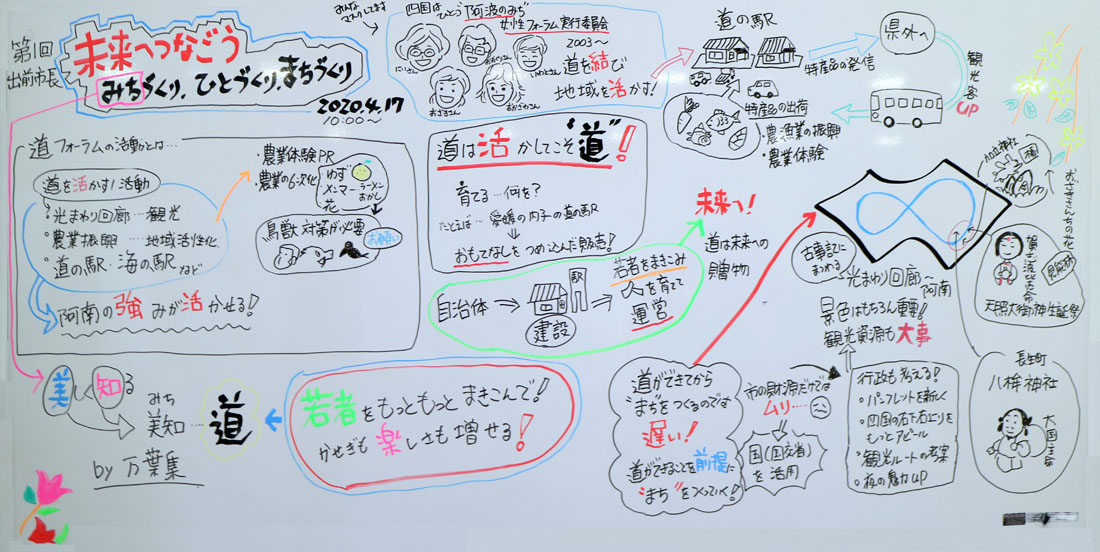 第1回
出前市長
未来へつなごう
みちづくり、ひとづくり、まちづくり
2020.4.17
10:00〜
みんな
マスクしてます
四国はひとつ“阿波のみち”
女性フォーラム実行委員会
2003〜
道を結び
地域を活かす!
おざきさん
道の駅
特産品の発信
特産品の出荷
・農漁業の振興
・農業体験
県外へ
観光客
UP
道フォーラムの活動とは…
道を活かす!活動
・光まわり回廊…観光
・農業振興 …地域活性化
・道の駅・海の駅など
阿南の強みが活かせる!
・農業体験PR
・農業の6次化
ゆず
メンマーラーメン
おかし
花
鳥獣対策が必要
お願い
道は活かしてこそ“道”!
育てる…何を?
たとえば…愛媛の内子の道の駅
おもてなしをつめ込んだ販売!
未来へ!
道は未来への
贈物
自治体
駅
建設
若者をまきこみ
人を育て
運営
古事記に
まつわる
光まわり回廊〜
阿南
景色はもちろん重要!
観光資源も大事
おざきさんちの花
見能林
天照大御神生誕祭
長生町
八桙神社
大国主命
美しく知る
みち
美知…道
by 万葉集
若者をもっともっとまきこんで!
かせぎも楽しさも増せる!
道ができてから
“まち”をつくるのでは
遅い!
道ができることを前提に
“まち”をつくっていく!
市の財源だけでは
ムリ…
国(国交省)
を活用
行政も考える!
・パンフレットを新しく
・四国の右下右上りを
もっとアピール
・観光ルートの考案
・桜の魅力UP